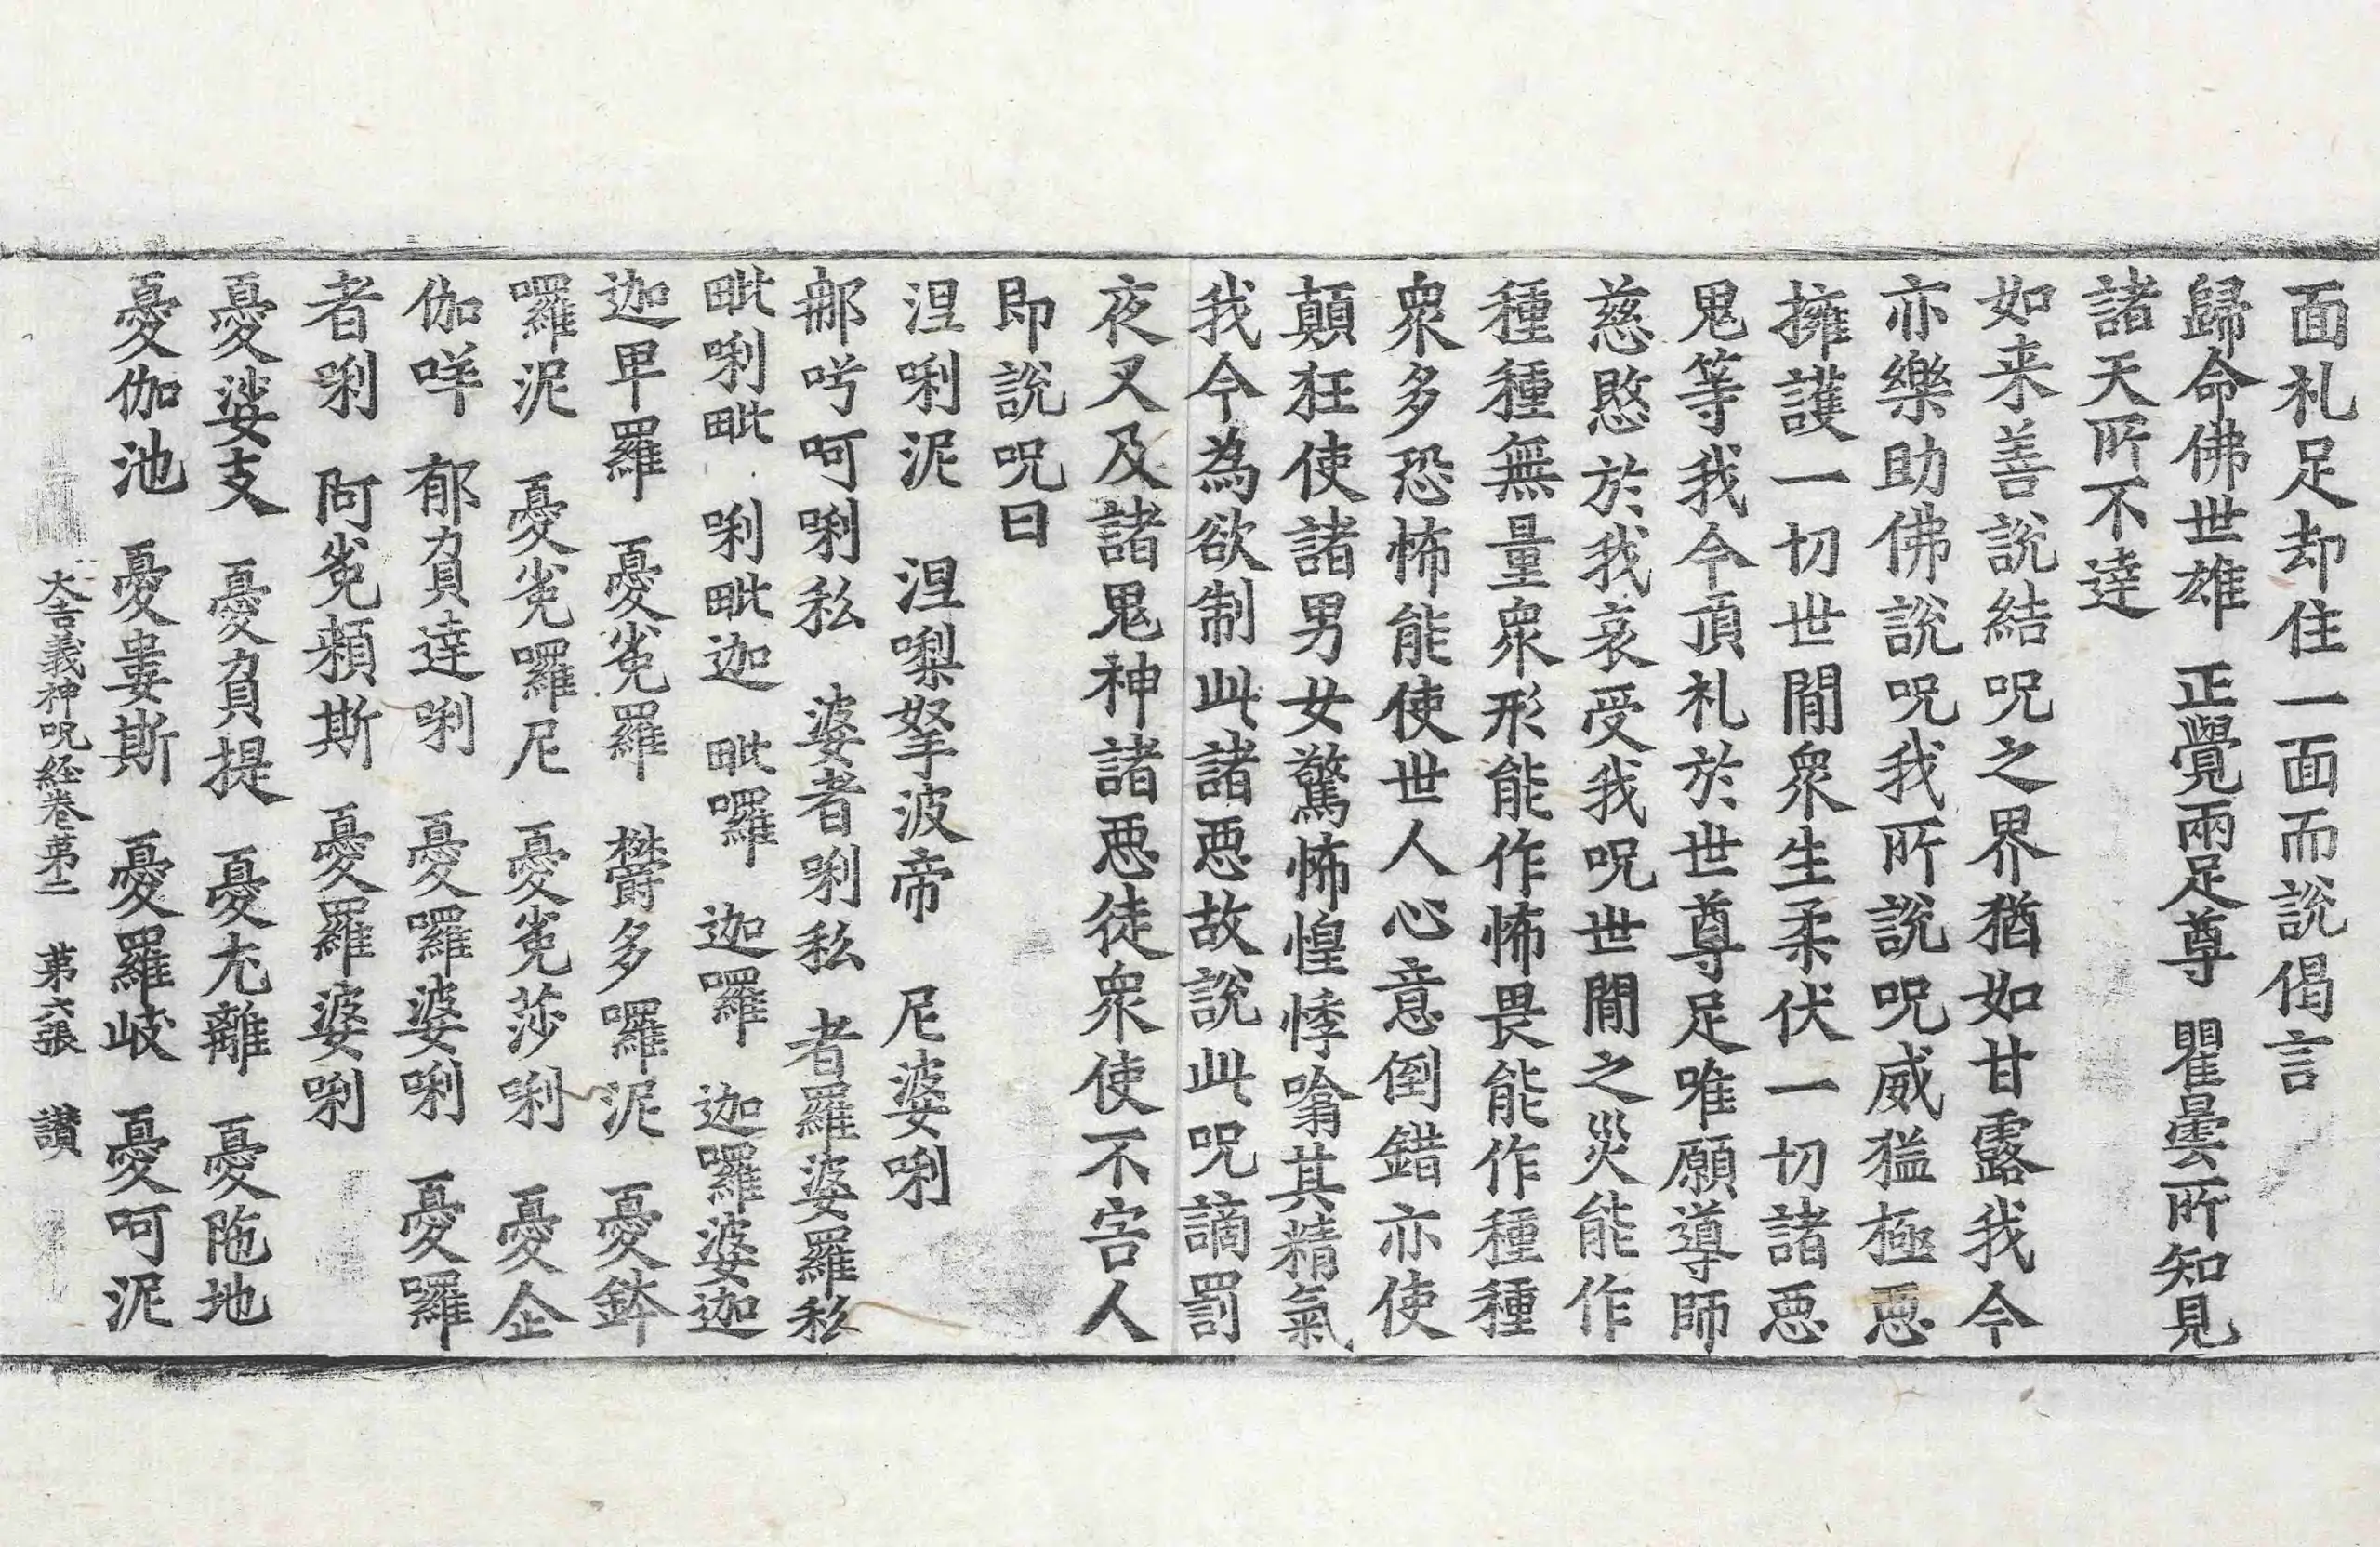 面札足却住一面而說偈言
歸命佛世雄 正覺兩足尊 瞿曇所知見
諸天所不逹
如来善說結呪之界猶如甘露我今
亦樂助佛說呪我所說呪威猛極惡
擁護一切世間衆生柔伏一切諸惡
鬼等我今頂札於世尊足唯願導師
慈愍於我哀受我呪世間之災能作
種種無量衆形能作怖畏能作種種
衆多恐怖能使世人心意倒錯亦使
顛狂使諸男女驚怖惶悸噏其精氣
我今為欲制此諸惡故說此呪謫罰
夜叉及諸鬼神諸惡徒衆使不害人
即說呪曰
涅唎泥 涅㗚拏波帝 尼婆唎
那呺呵唎私 婆者唎私 者羅婆羅私
毗唎毗 唎毗迦 毗囉 迦囉 迦囉婆迦
迦卑羅 憂㲋羅 欝多囉泥 憂鉢
囉泥 憂㲋囉尼 憂㲋莎唎 憂企
伽咩 郁負逹唎 憂囉婆唎 憂囉
者唎 阿㲋頼斯 憂羅婆唎
憂娑支 憂負提 憂尤離 憂陁地
憂伽池 憂婁斯 憂羅岐 憂呵泥
大吉義神呪経卷苐二 苐六張 讃